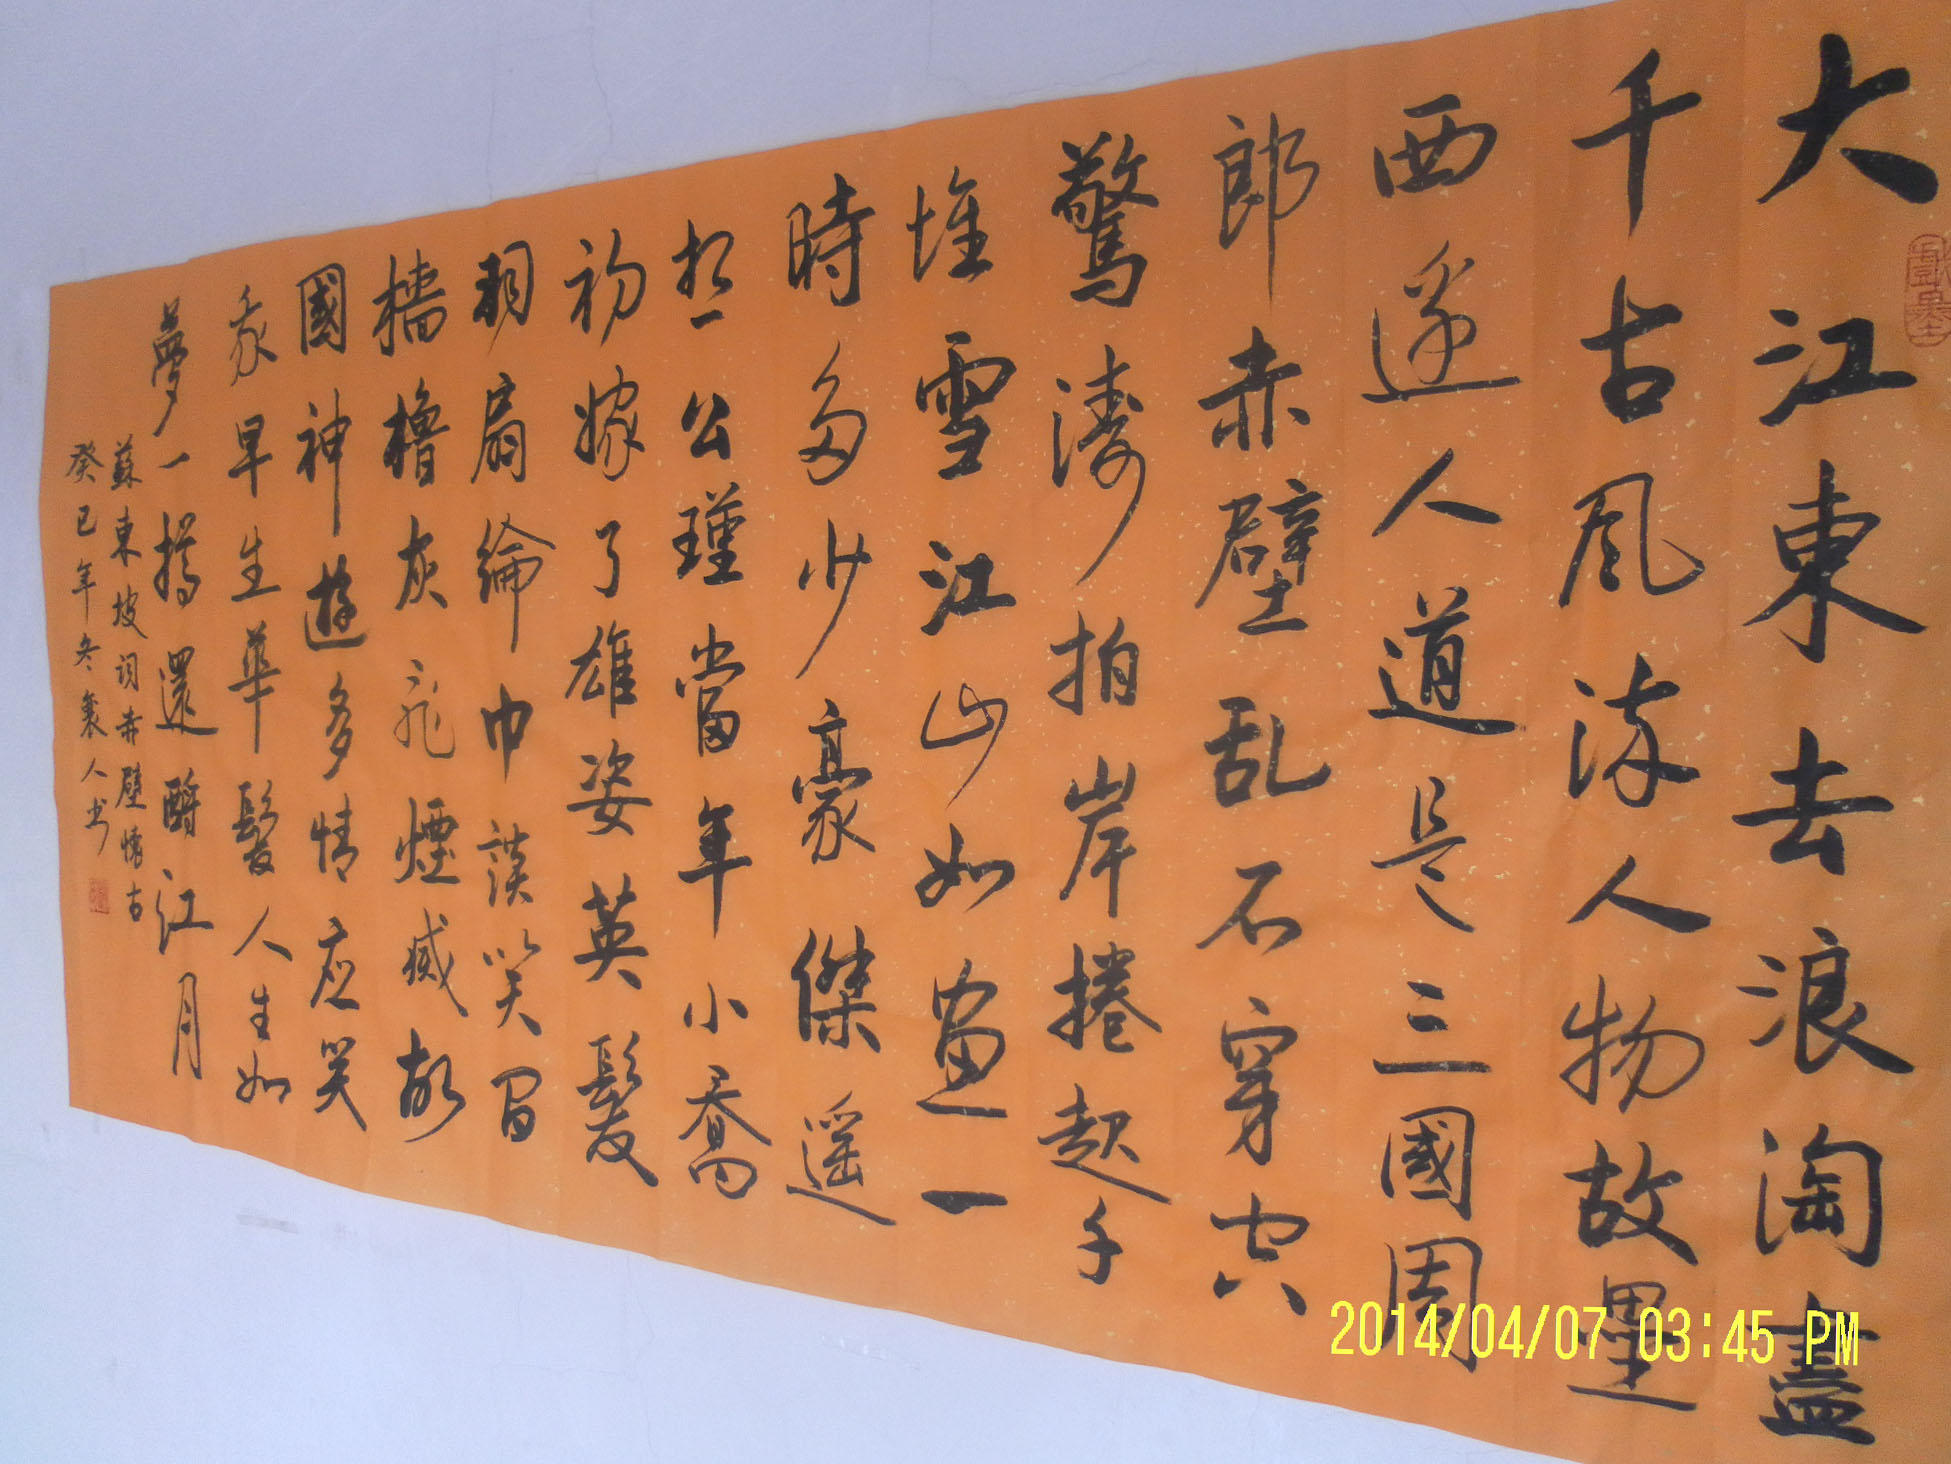 大江東去浪淘盡
千古風流人物故壘
西邊人道是三國周
郎赤壁乱石穿空
驚濤拍岸捲起千
堆雪江山如畫一
時多少豪傑遥
想公瑾當年小喬
初嫁了雄姿英髮
羽扇綸巾談笑間
檣櫓灰飛煙滅故
國神遊多情應笑
我早生華髮人生如
夢一樽還酹江月
蘇東坡词赤壁懷古
癸巳年冬襄人书
2014/04/07 03:45 PM